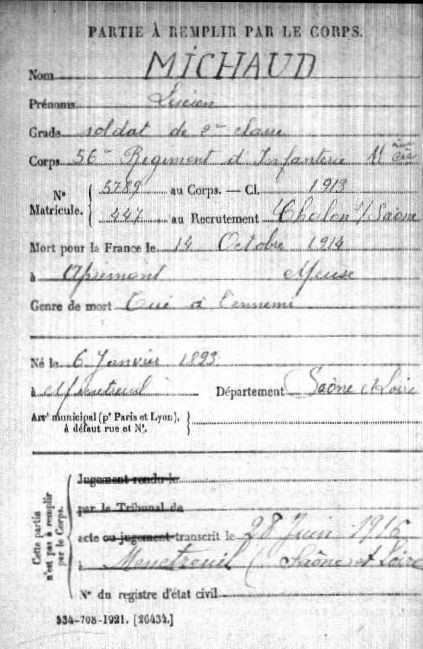 PARTIE À REMPLIR PAR LE CORPS.
Nom MICHAUD
Prénoms Lucien
Grade soldat de 2me classe
Corps 56me Régiment d'Infanterie 11 Cie
N° Matricule. { 5789 au Corps. — Cl. 1913
447 au Recrutement Chalon s/ Saône
Mort pour la France le 14 Octobre 1914
à Apremont Meuse
Genre de mort Tué à l'ennemi
Né le 6 Janvier 1893
à Menetreuil Département Saône et Loire
Arrt municipal (pr Paris et Lyon), à défaut rue et N°. }
Cette partie n'est pas à remplir par le Corps.
Jugement rendu le
par le Tribunal de
acte ou jugement transcrit le 28 Juin 1916
à Menetreuil (Saône et Loire
N° du registre d'état civil
534-708-1921. [26434.]